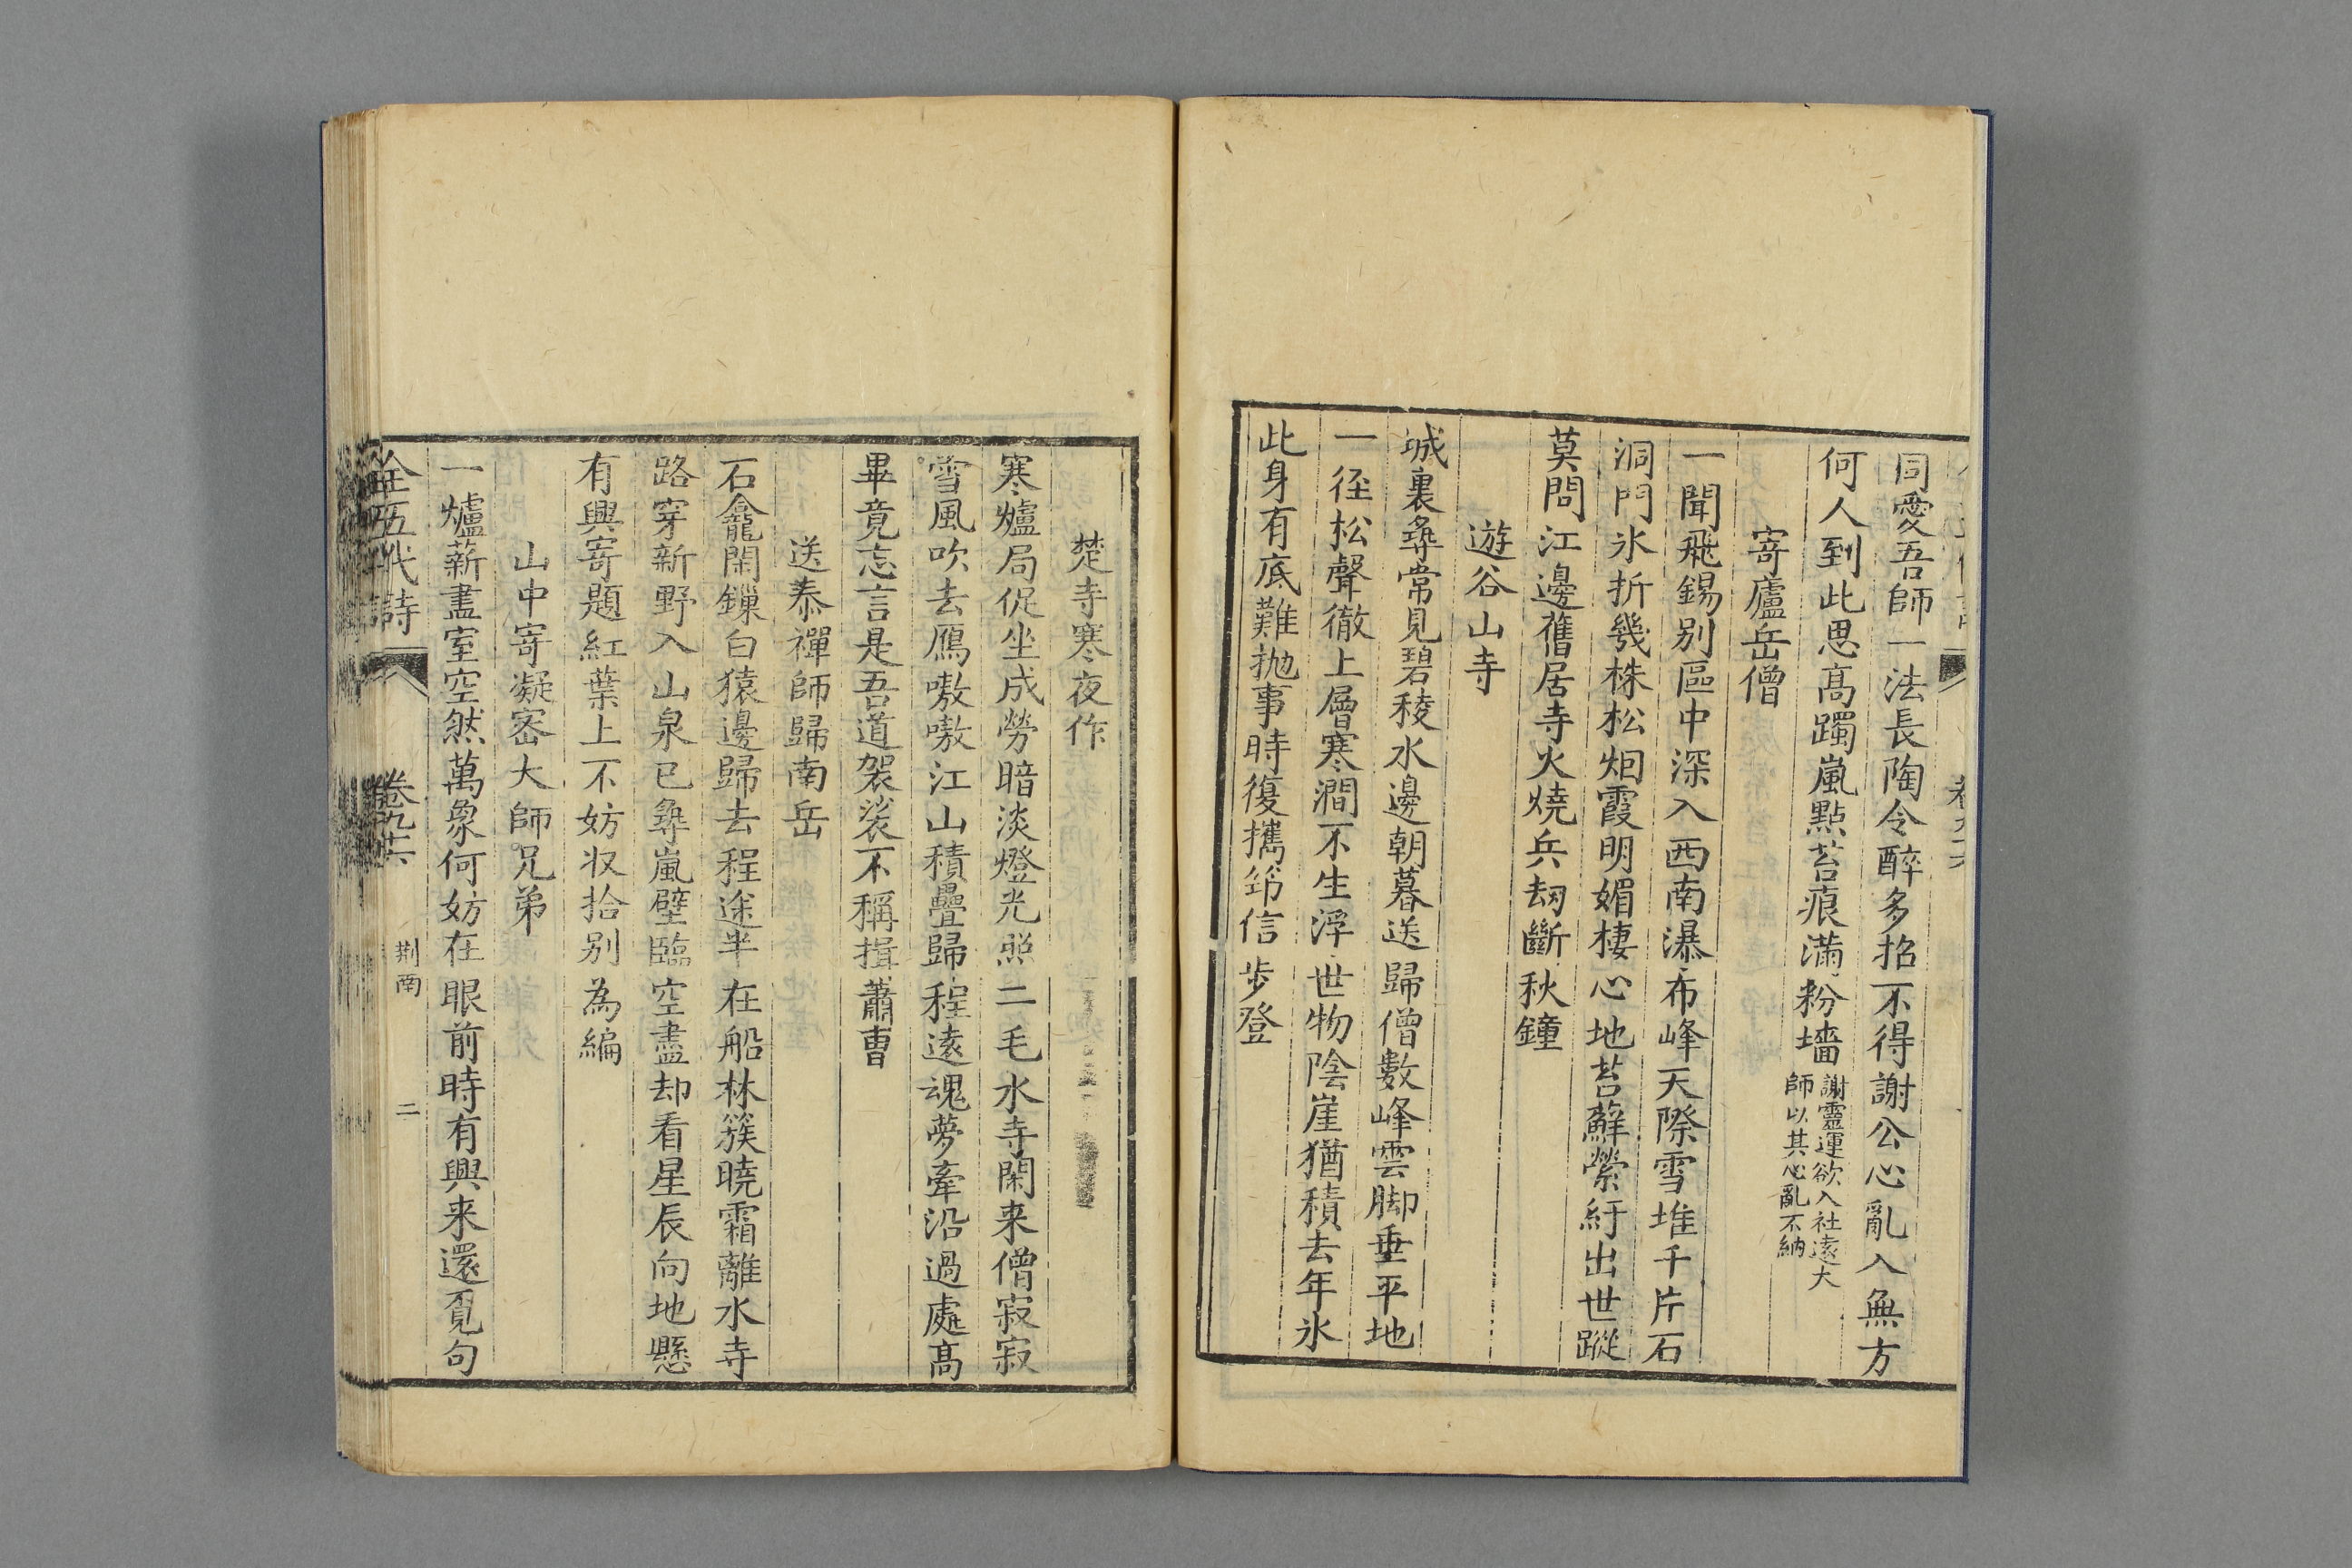 同愛吾師一法長陶令醉多招不得謝公心亂入無方
何人到此思高躅嵐點苔痕滿粉墻謝靈運欲入社遠大
師以其心亂不納
寄廬岳僧
一聞飛錫别區中深入西南瀑布峰天際雪堆千片石
洞門氷折幾株松烟霞明媚棲心地苔蘚縈紆出世蹤
莫問江邊舊居寺火燒兵刼斷秋鐘
遊谷山寺
城裏尋常見碧稜水邊朝暮送歸僧數峰雲脚垂平地
一徑松聲徹上層寒澗不生浮世物陰崖猶積去年氷
此身有底難抛事時復攜筇信步登
楚寺寒夜作
寒爐局促坐成勞暗淡燈光照二毛水寺閑来僧寂寂
雪風吹去鴈嗷嗷江山積疊歸程遠魂夢牽沿過處高
畢竟忘言是吾道袈裟不稱揖蕭曹
送泰禪師歸南岳
石龕閑鏁白猿邊歸去程途半在船林簇曉霜離水寺
路穿新野入山泉已尋嵐壁臨空盡却看星辰向地懸
有興寄題紅葉上不妨収拾别為編
山中寄凝密大師兄弟
一爐薪盡室空然萬象何妨在眼前時有興来還覓句
全五代詩 卷九六 荆南 二